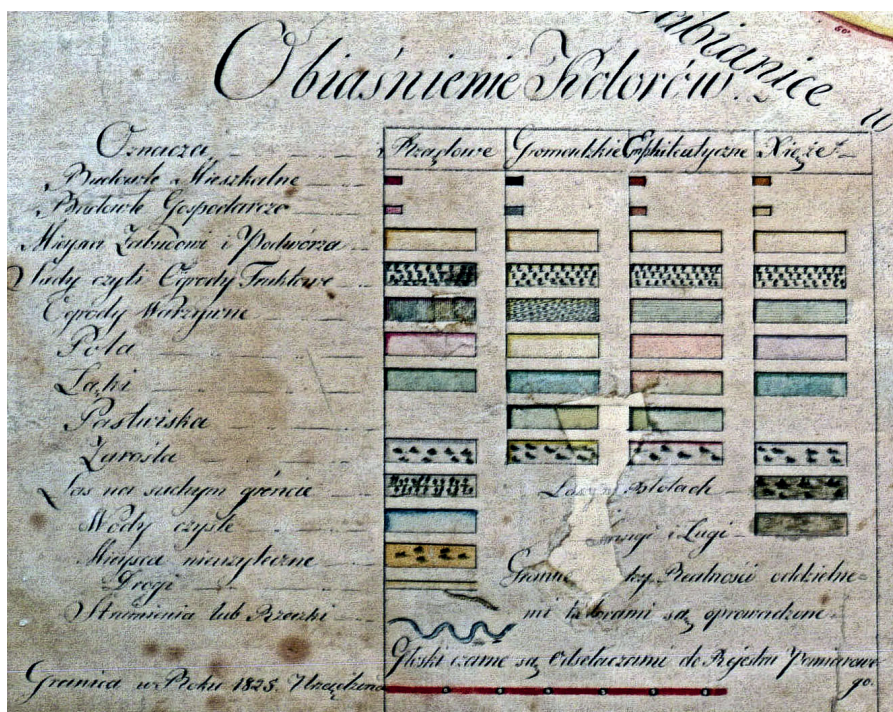 Pabianice
60.
Obiaśnienie Kolorów.
Oznacza Rządowe Gromadzkie Emphiteutyczne Xięże
Budowle Mieszkalne
Budowle Gospodarcze
Mieysca Zabudowi i Podwórza
Sady czyli Ogrody Fruktowe
Ogrody Warzywne
Pola
Łąki
Pastwiska
Zarośla
Las na suchym gróncie Las na Błotach
Wody czyste i Ługi
Mieysca nieużyteczne
Drogi Granice Realność oddzielne-
Strumienia lub Rzeczki mi kolorami są oprowadzone
Głoski czarne są odsełaczami do Rejestru Pomiarowe
go.
Granica w Roku 1825 Urządzona